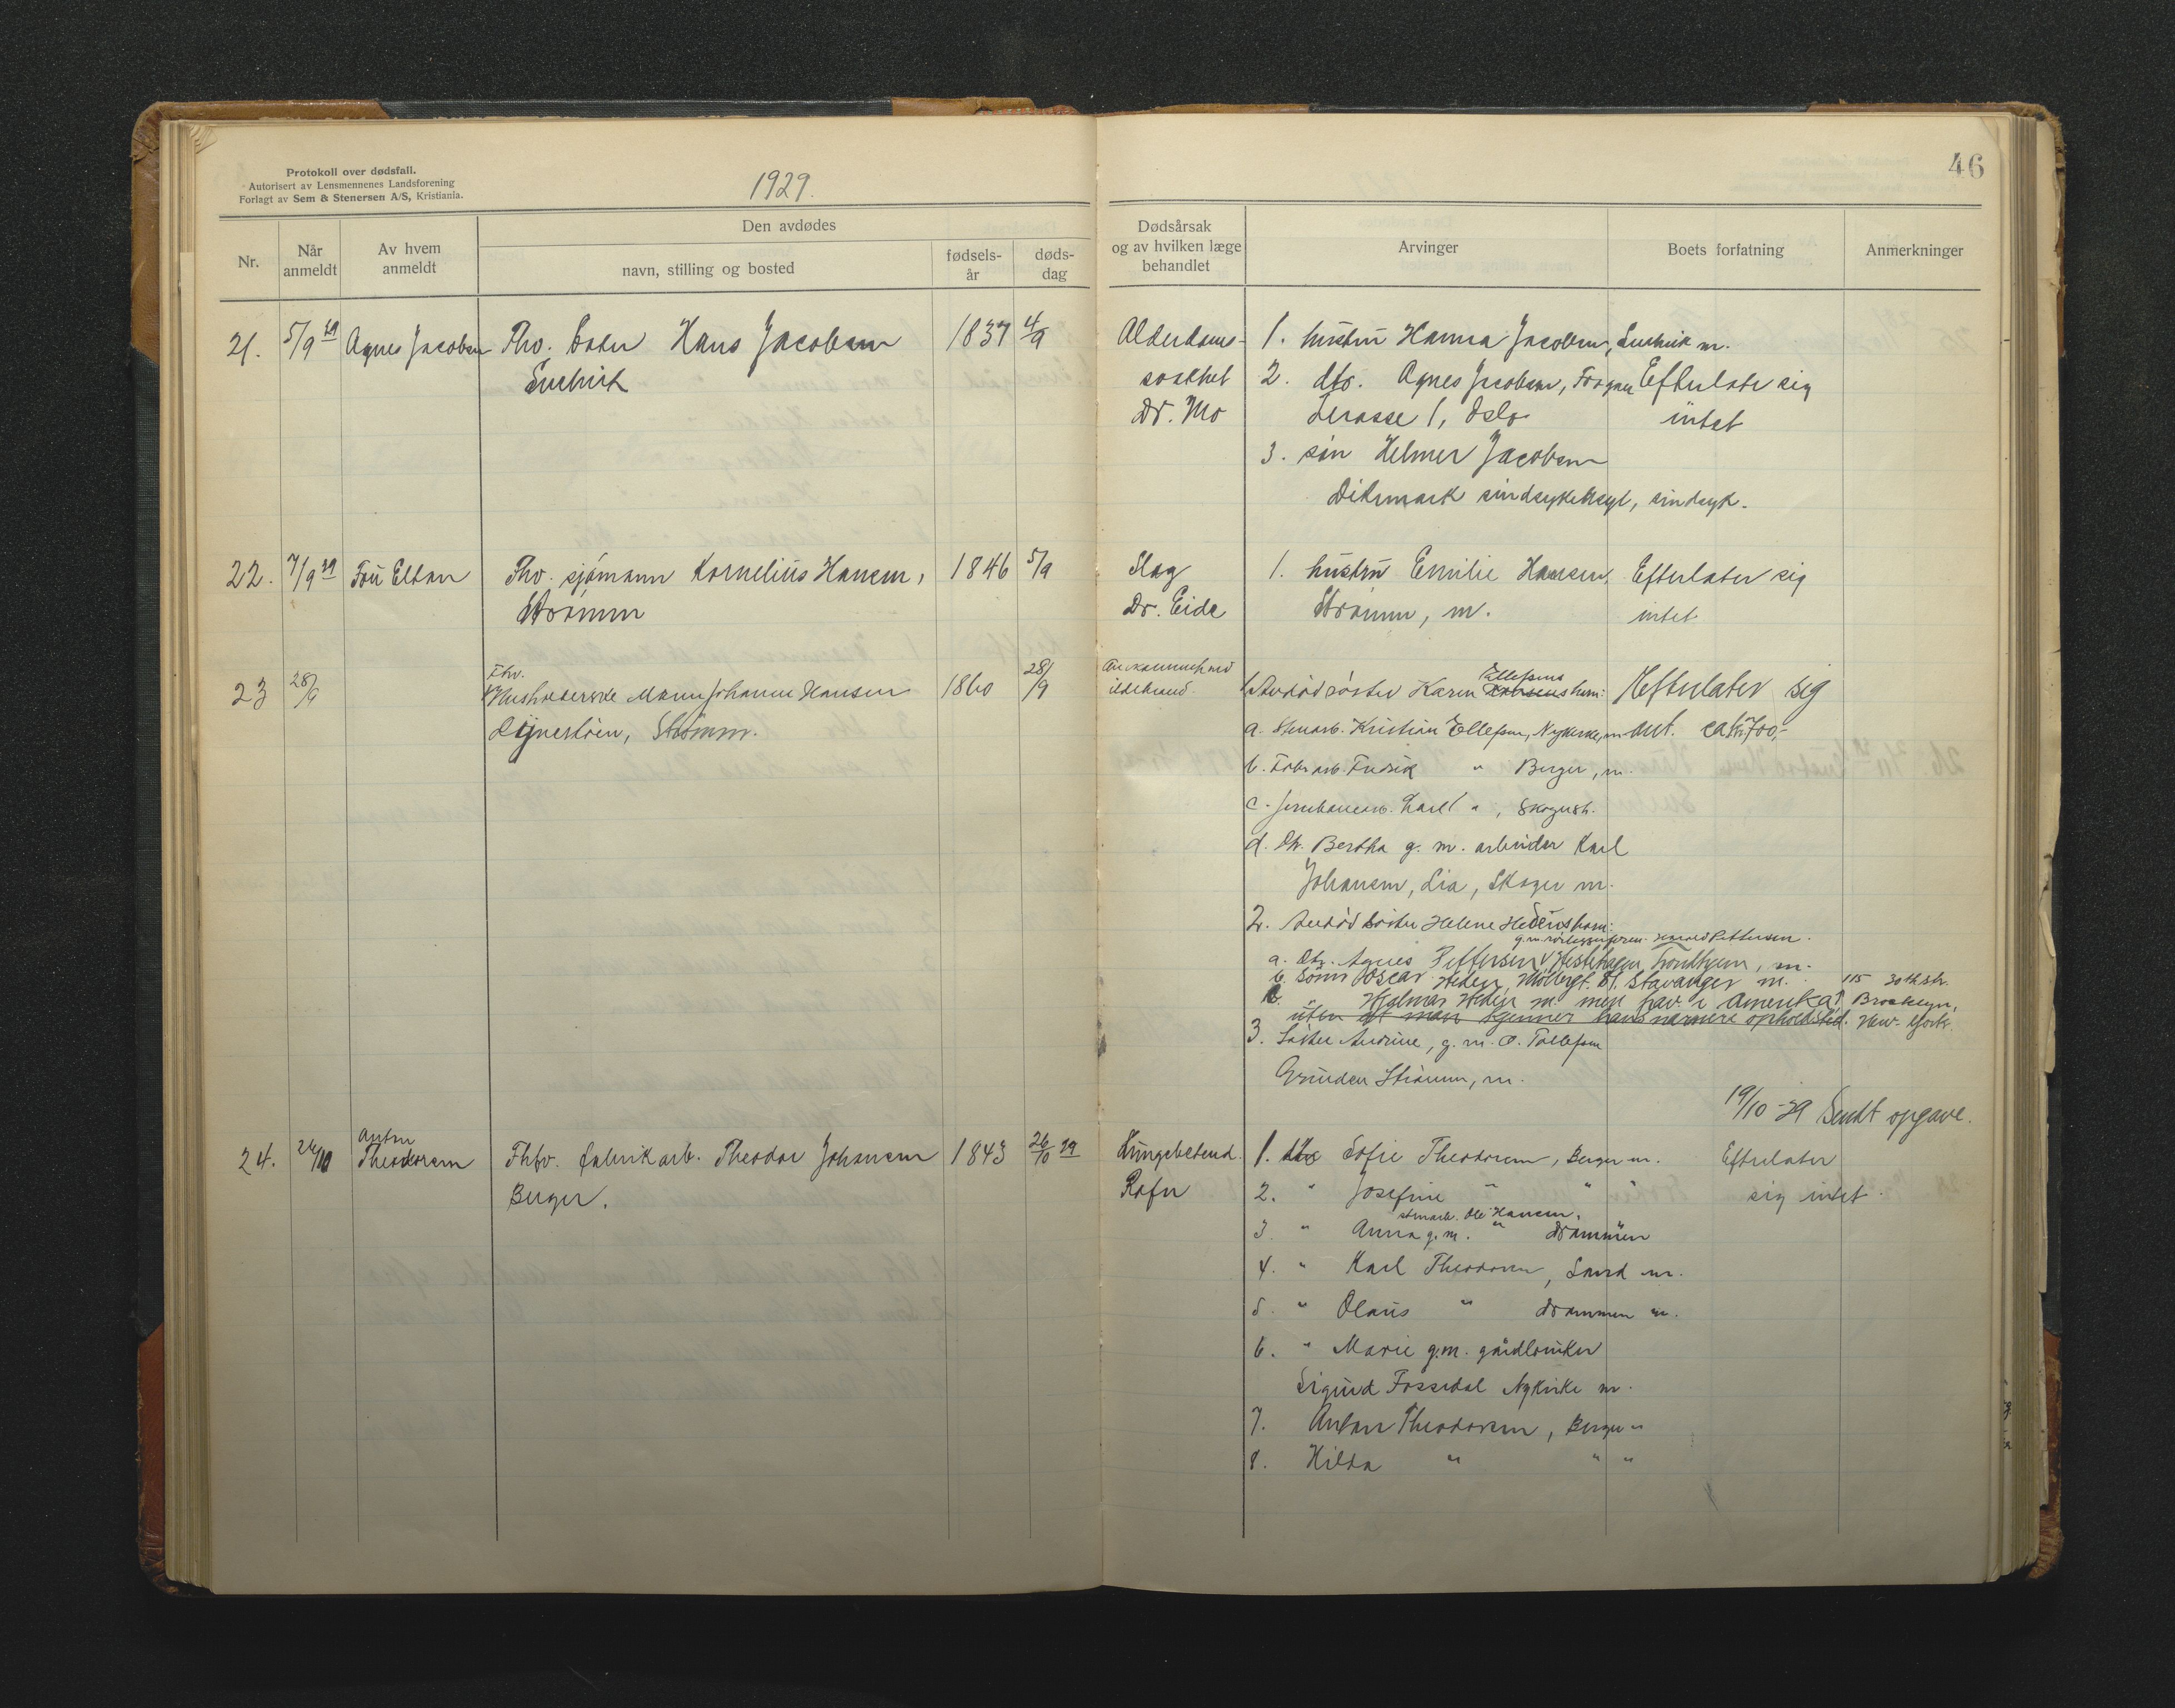 Protokoll over dødsfall.
Autorisert av Lensmennenes Landsforening
Forlagt av Sem & Stenersen A/S, Kristiania.
1929.
46
Nr.
Når anmeldt
Av hvem anmeldt
Den avdødes
navn, stilling og bosted
fødsels-år
døds-dag
Dødsårsak og av hvilken læge behandlet
Arvinger
Boets forfatning
Anmerkninger
21. 5/9 29 Agnes Jacobsen Fhv. Hans Jacobsen 1837 4/9
Alderdoms-
svakhet
Dr. Mo
1. hustru Hanna Jacobsen, m.
2. dtr. Agnes Jacobsen, Frogner
Terasse 1, Oslo
3. søn Helmer Jacobsen
Dikemark sindsykeasyl, sindsyk.
Efterlater sig
intet
22. 7/9 29 Fru Elton Fhv. sjømann Kornelius Hansen, 1846 5/9
Strømm
Slag
Dr. Eide
1. hustru Emilie Hansen
Strømm, m.
Efterlater sig
intet
23 28/9
Fhv.
Husholderske Maren Johanne Hansen 1860 28/9
Strømm.
1. Avdød søster Karen Ellefsens barn:
a. Kristian Ellefsen, Nykirke, m
b. Fabr.arb. Fredrik " Berger, m.
c. Karl " , Skogersh.
d. Dtr. Bertha g. m. arbeider Karl
Johansen, Lia, Skoger m.
2. Avdød søster Helene Hedens barn:
a. Dtr. Agnes Pettersen Trondhjem, m.
b. Sønn Oscar Heden, Stavanger m.
c. " Hjalmar Heden m. men hav. i Amerika, 115 30th str.
uten at man kjenner hans nærmere opholdsted. Brooklyn, New-York.
3. Søster Andrine, g. m. O. Tollefsen
Strømm, m.
Efterlater sig
ca kr. 700,-
19/10-29 Sendt opgave.
24. 26/10 Anton
Theodorsen Fhv. fabrikarb. Theodor Johansen 1843 26/10 29
Berger.
Lungebetend.
Rafn
1. dtr. Sofie Theodorsen, Berger m.
2. " Josefine " " "
3. " Anna g.m. stenarb. Ole Hansen, Drammen
4. " Karl Theodorsen, Sand m.
5. " Olaus " Drammen m.
6. " Marie g.m. gårdbruker
Sigurd Fossdal Nykirke m.
7. Anton Theodorsen, Berger "
8. Hilda " " "
Efterlater
sig intet.